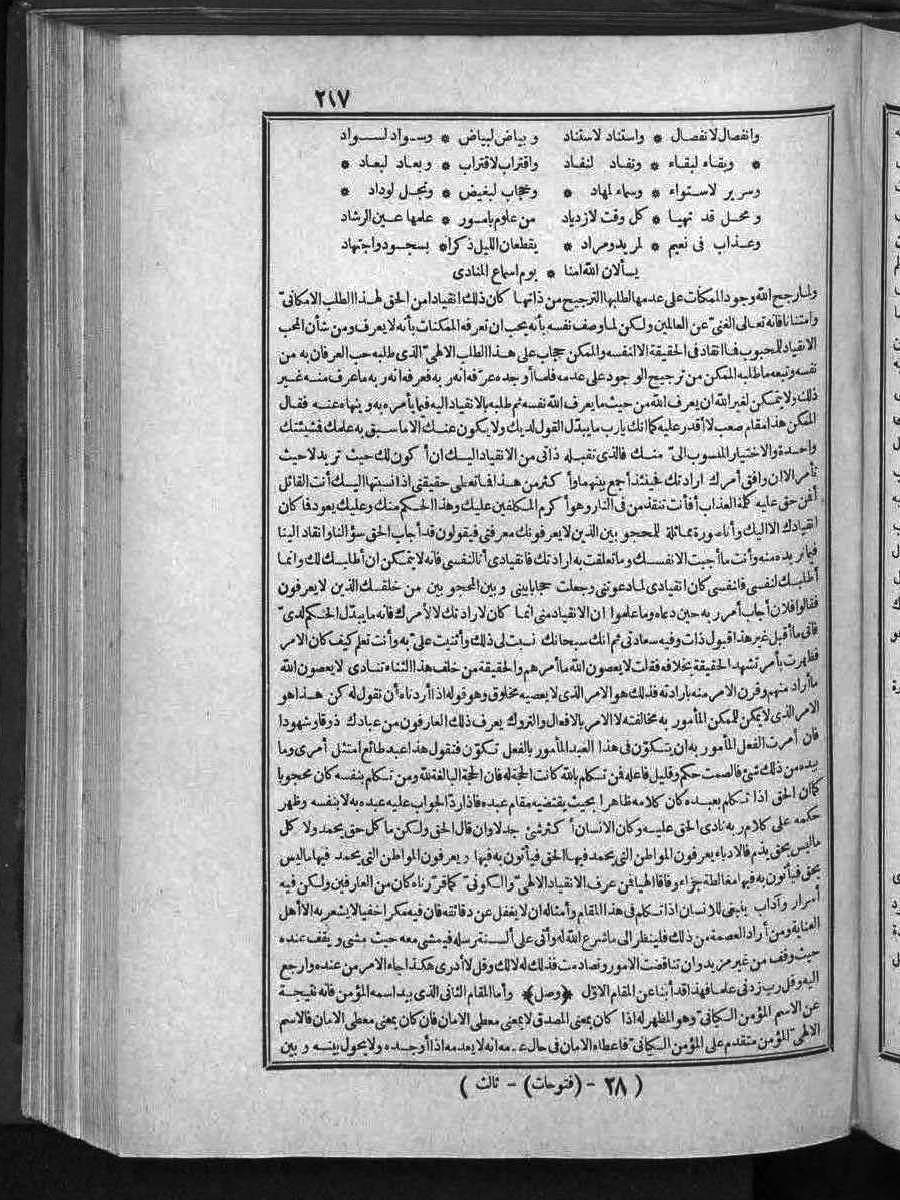 ٢١٧
وانفصال لانفصال * واستناد لاستناد وبياض لبياض * وسواد لسواد
* وبقاء لبقاء * ونفاد لنفاد واقتراب لاقتراب * وبعاد لبعاد *
وسرير لاستواء * وسماء لمهاد * وحجاب لبغيض * وتجل لوداد *
ومحل قد تهيا * كل وقت لازدياد من علوم بامور * علمها عين الرشاد
وعذاب في نعيم * لمريد ومراد * يقطعان الليل ذكرا * بسجود واجتهاد
يسألان الله امنا * يوم اسماع المنادى
ولما رجح الله وجود الممكنات على عدمها لطلبها الترجيح من ذاتها كان ذلك انقيادا من الحق لهذا الطلب الامكانىّ
وامتنانا فانه تعالى الغنىّ عن العالمين ولكن لما وصف نفسه بأنه يحب ان تعرفه الممكنات بأنه لا يعرف ومن شأن المحب
الانقياد للمحبوب فما انقاد فى الحقيقة الا لنفسه والممكن حجاب على هذا الطلب الالهىّ الذى طلبه حب العرفان به من
نفسه وتبعه ما طلبه الممكن من ترجيح الوجود على عدمه فلما أوجده عرّفه انه ربه فعرفه انه ربه ما عرف منه غير
ذلك ولا يتمكن لغير الله ان يعرف الله من حيث ما يعرف الله نفسه ثم طلبه بالانقياد اليه فيما يأمره به وينهاه عنه فقال
الممكن هذا مقام صعب لا أقدر عليه كما انك يارب ما يبدّل القول لديك ولا يكون عنك الا ما سبق به علمك فمشيئتك
واحدة والاختيار المنسوب الىّ منك فالذى نقبله ذاتى من الانقياد اليك ان أكون لك حيث تريد لا حيث
تأمر الا ان وافق أمرك ارادتك فحينئذ أجمع بينهما وأكثر من هذا فما تعطى حقيقتى اذا نسبتها اليك أنت القائل
أفمن حق عليه كلمة العذاب أفأنت تنقذ من فى النار وهو أكرم المكلفين عليك وهذا الحكم منك وعليك يعود فما كان
انقيادك الا اليك وأنا صورة مماثلة للمحجوبين الذين لا يعرفونك معرفتى فيقولون قد أجاب الحق سؤالنا وانقاد الينا
فيما نريده منه وأنت ما أجبت الا نفسك وما تعلقت به ارادتك فانقيادى أنا لنفسى فانه لا يتمكن ان أطلبك لك وانما
أطلبك لنفسى فلنفسى كان انقيادى لما دعوتنى وجعلت حجابا بينى وبين المحجوبين من خلقك الذين لا يعرفون
فقالوا فلان أجاب أمر ربه حين دعاه وما علموا ان الانقياد منى انما كان لارادتك لا لأمرك فانه ما يبدّل الحكم لدىّ
فانى ما أقبل غير هذا قبول ذات وفيه سعادتى ثم انك سبحانك نسبت لى ذلك وأثنيت علىّ به وأنت تعلم كيف كان الامر
فظهرت بأمر تشهد الحقيقة بخلافه فقلت لا يعصون الله ما أمرهم والحقيقة من خلف هذا الثناء تنادى لا يعصون الله
ما أراد منهم وقرن الامر منه بارادته فذلك هو الامر الذى لا يعصيه مخلوق وهو قوله اذا أردناه أن نقول له كن هذا هو
الامر الذى لا يمكن للممكن المأمور به مخالفته لا الامر بالافعال والتروك يعرف ذلك العارفون من عبادك ذوقا وشهودا
فان أمرت الفعل المأمور به ان يتكوّن فى هذا العبد المأمور بالفعل تكوّن فتقول هذا عبد طائع امتثل أمرى وما
بيده من ذلك شئ فالصمت حكم وقليل فاعله فمن تكلم بالله كانت الحجة له فان الحجة البالغة لله ومن تكلم بنفسه كان محجوبا
كما ان الحق اذا تكلم بعبده كان كلامه ظاهرا بحيث يقتضيه مقام عبده فاذا ردّ الجواب عليه عبده به لا بنفسه وظهر
حكمه على كلام ربه نادى الحق عليه وكان الانسان أكثر شئ جدلا وان قال الحق ولكن ما كل حق يحمد ولا كل
ما ليس بحق يذم فالادباء يعرفون المواطن التى يحمد فيها الحق فيأتون به فيها ويعرفون المواطن التى يحمد فيها ما ليس
بحق فيأتون به فيها مغالطة جزاء وفاقا الهيا فمن عرف الانقياد الالهىّ والكونىّ كما قرّرناه كان من العارفين ولكن فيه
أسرار وآداب ينبغى للانسان اذا تكلم فى هذا المقام وأمثاله ان لا يغفل عن دقائقه فان فيه مكرا خفيا لا يشعر به الا أهل
العناية ومن أراد العصمة من ذلك فلينظر الى ما شرع الله له وأتى على ألسنة رسله فيمشى معه حيث مشى ويقف عنده
حيث وقف من غير مزيد وان تناقضت الامور وتصادمت فذلك له لا لك وقل لا أدرى هكذا جاء الامر من عنده وارجع
اليه وقل رب زدنى علما فهذا قد أبنا عن المقام الاوّل ﴿وصل﴾ وأما المقام الثانى الذى بيد اسمه المؤمن فانه نتيجة
عن الاسم المؤمن الكيانىّ وهو المظهر له اذا كان بمعنى المصدق لا بمعنى معطى الامان فان كان بمعنى معطى الامان فالاسم
الالهىّ المؤمن متقدم على المؤمن الكيانىّ فاعطاه الامان فى حال عدمه انه لا يعدمه اذا أوجده ولا يحول بينه وبين
( ٢٨ - (فتوحات) - ثالث )